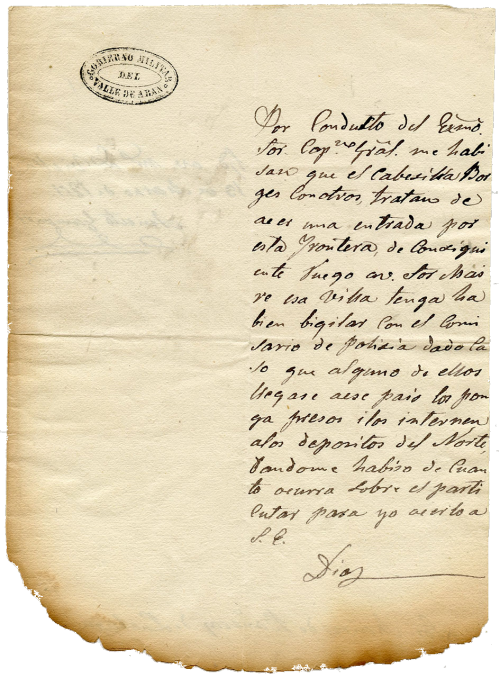 GOBIERNO MILITAR
DEL
VALLE DE ARAN
Por Conducto del Exmo.
Sor. Capn. Gral. me habi
san que el Cabesilla Bor
ges Conotros, tratan de
acer una entrada por
esta Frontera, de Consigui
ente Ruego av. Sor Mai
re esa Villa tenga ha
bien bigilar Con el Comi
sario de Polisia dado Ca
so que alguno de ellos
llegase aese pais los pon
ga presos ilos internen
alos depositos del Norte,
dandome habiso de Cuan
to ocurra sobre el parti
cular para yo acerlo a
S. E.
Dios